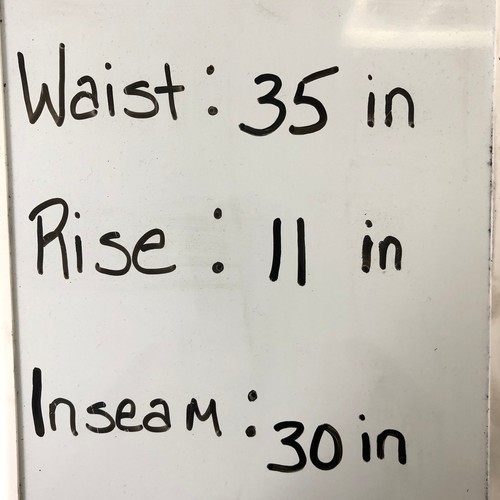 Waist: 35 in
Rise: 11 in
Inseam: 30 in